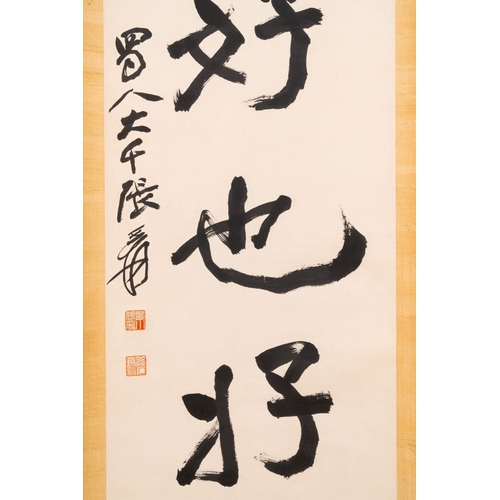 好也好
蜀人大千張爰